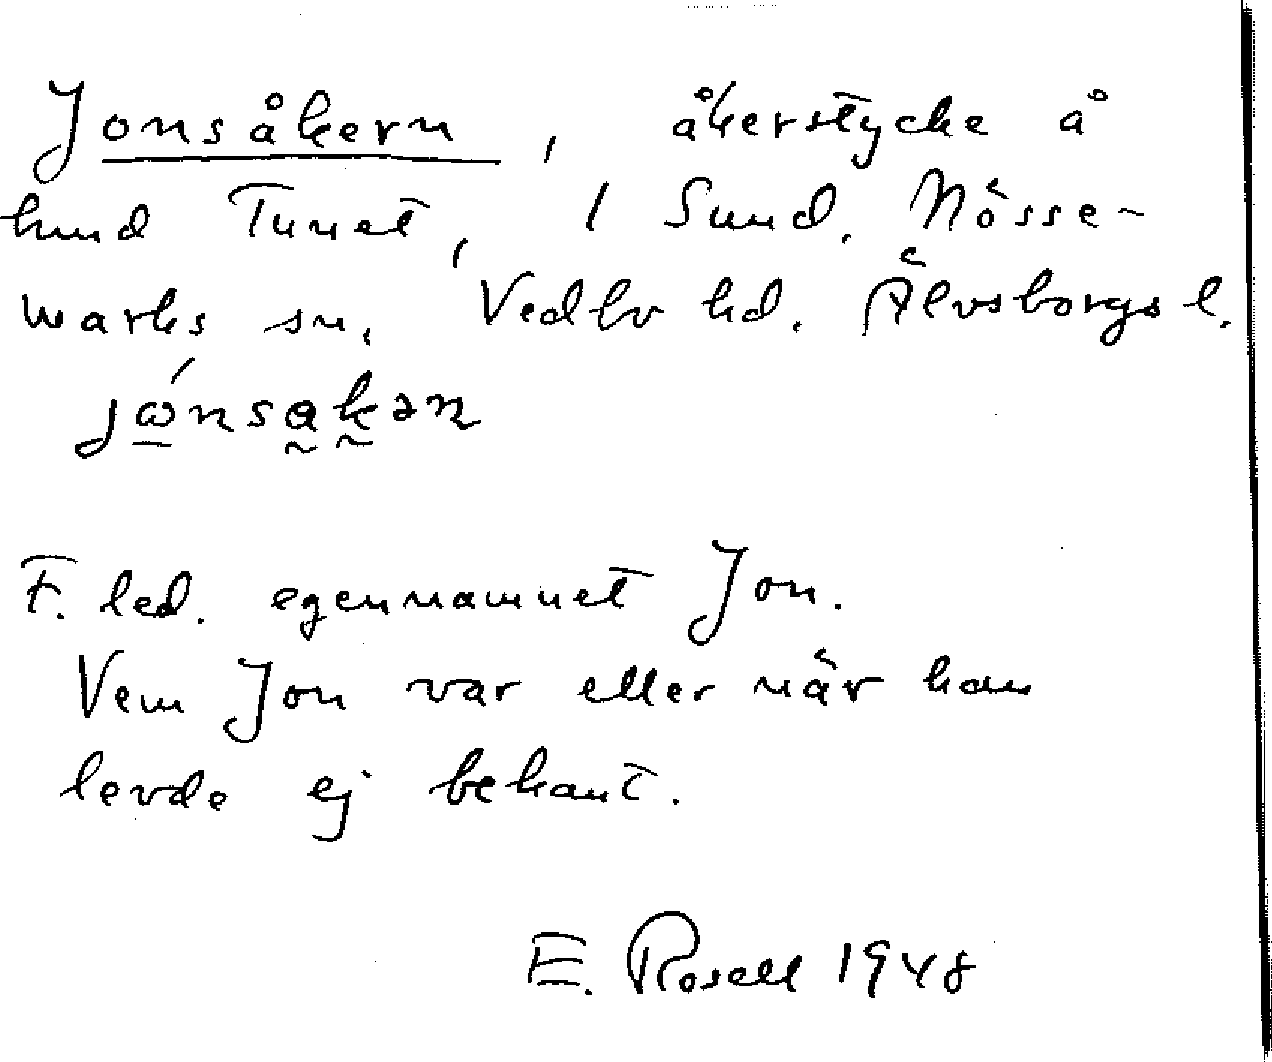 Jonsåkern, åkerstycke å
hmd Tunet, 1 Sund. Nösse-
marks sn. Vedbo hd. Älvsborgs l.
jɷ́nsakən
F. led. egennamnet Jon.
Vem Jon var eller när han
levde ej bekant.
E. Rosell 1948